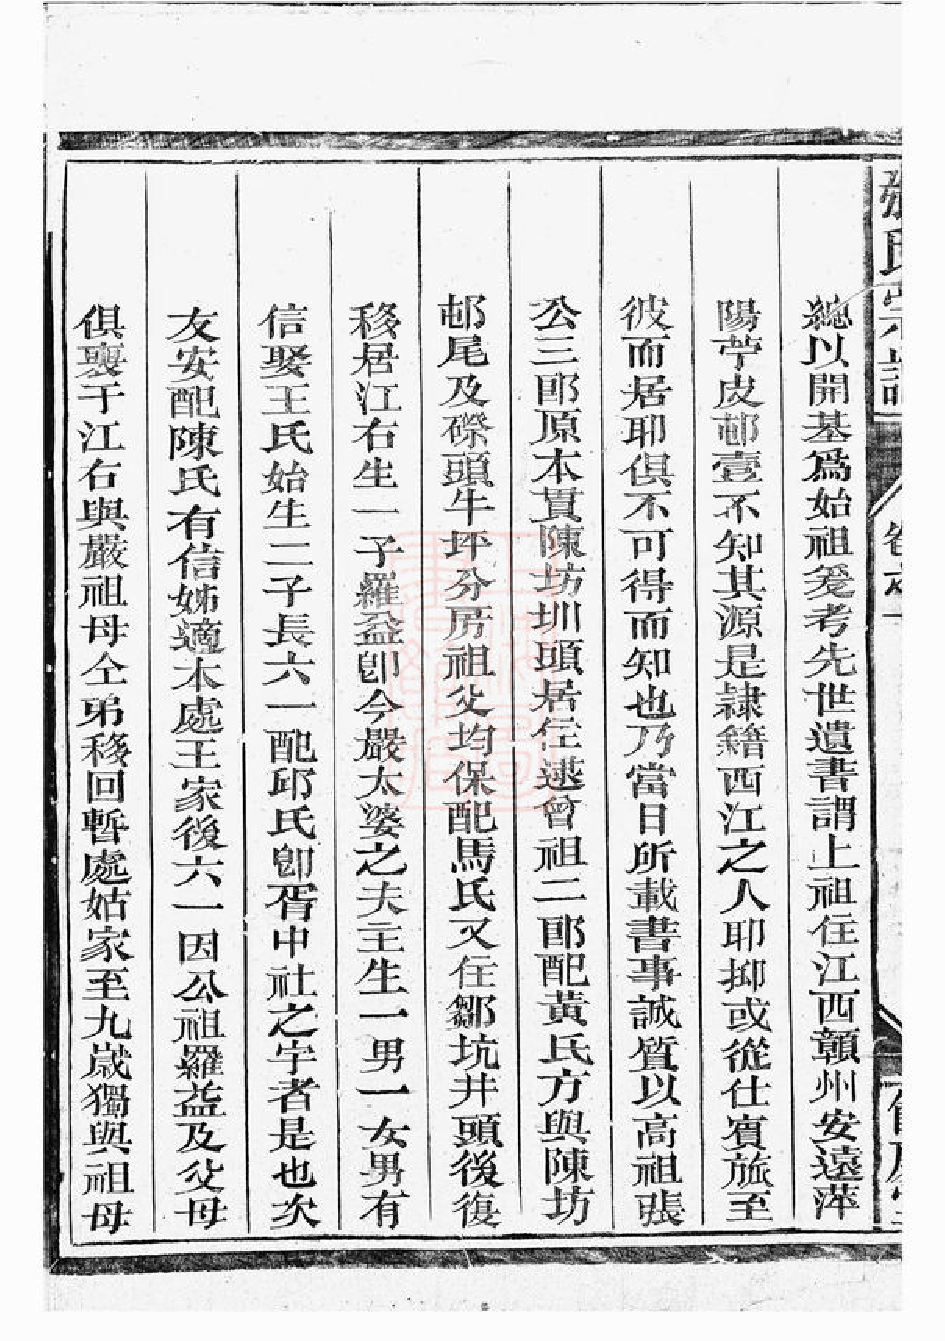 張氏宗譜
卷之一
總以開基爲始祖爰考先世遺書謂上祖住江西贛州安遠萍
陽苧皮邨壹不知其源是隷籍西江之人耶抑或從仕賓旅至
彼而居耶俱不可得而知也乃當日所載書事誠質以高祖張
公三郎原本貫陳坊圳頭居住逮曾祖二郎配黃氏方與陳坊
邨尾及磜頭牛坪分房祖父均保配馬氏又住鄒坑井頭後復
移居江右生一子羅益卽今嚴太婆之夫主生一男一女男有
信娶王氏始生二子長六一配邱氏卽胥中社之宇者是也次
友安配陳氏有信姊適本處王家後六一因公祖羅益及父母
俱襄于江右與嚴祖母仝弟移回暫處姑家至九歲獨與祖母